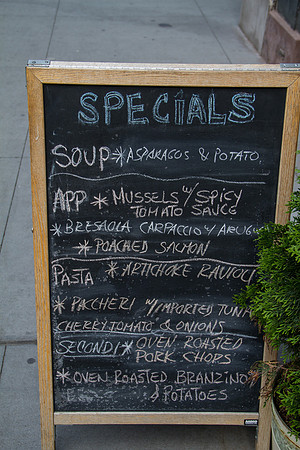 SPECIALS
SOUP * ASPARAGOS & POTATO,
APP * MUSSELS W/ SPICY
TOMATO SAUCE
* BRESAOLA CARPACCIO W/ ARUGU
* POACHED SALMON
PASTA * ARTICHOKE RAVIOLI
* PACCHERI W/ IMPORTED TUNA
CHERRY TOMATO & ONIONS
SECONDI * OVEN ROASTED
PORK CHOPS
* OVEN ROASTED BRANZINO
& POTATOES